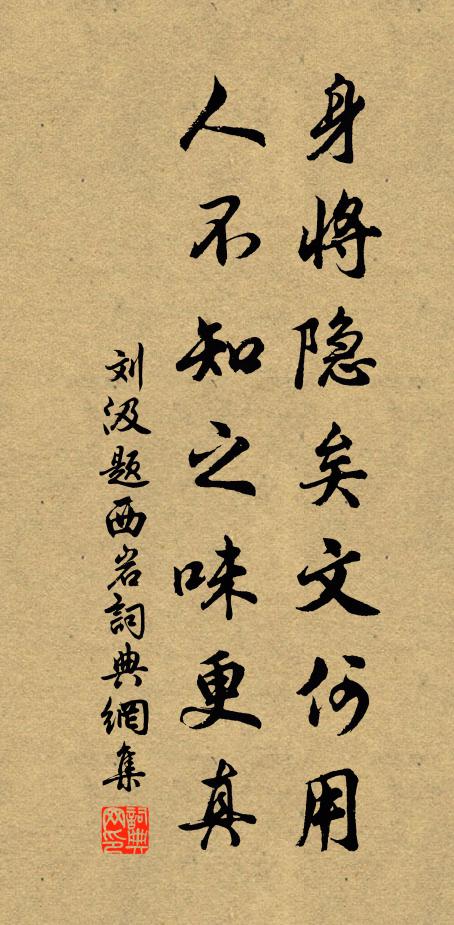 身将隐矣文何用
人不知之味更真
刘汲题西岩詞典網集
詞典網印